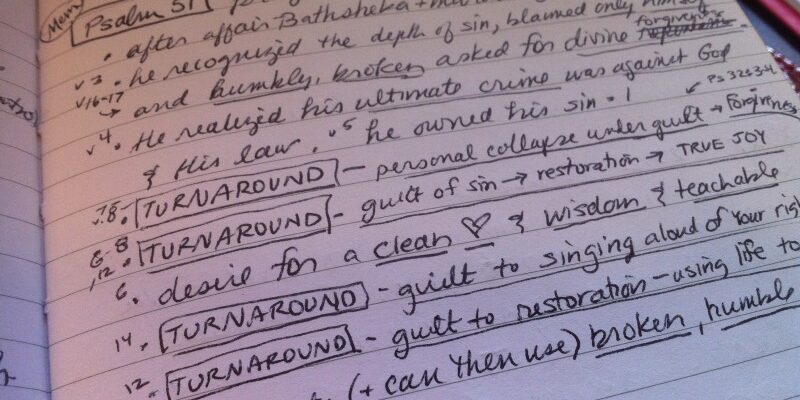 (Mem) Psalm 51
• after affair Bathsheba +
v3 • he recognized the depth of sin, blamed only himself
v16-17 → and humbly, broken asked for divine forgiveness
v4 • He realized his ultimate crime was against God
& His law. v5 he owned his sin. Ps 32:3-4
7.8. TURNAROUND – personal collapse under guilt → Forgiveness
6-8, 12. TURNAROUND – guilt of sin → restoration → TRUE JOY
6. desire for a clean ♡ & wisdom & teachable
14. TURNAROUND – guilt to singing aloud of Your
12. TURNAROUND – guilt to restoration – using life to
(+ can then use) broken, humble